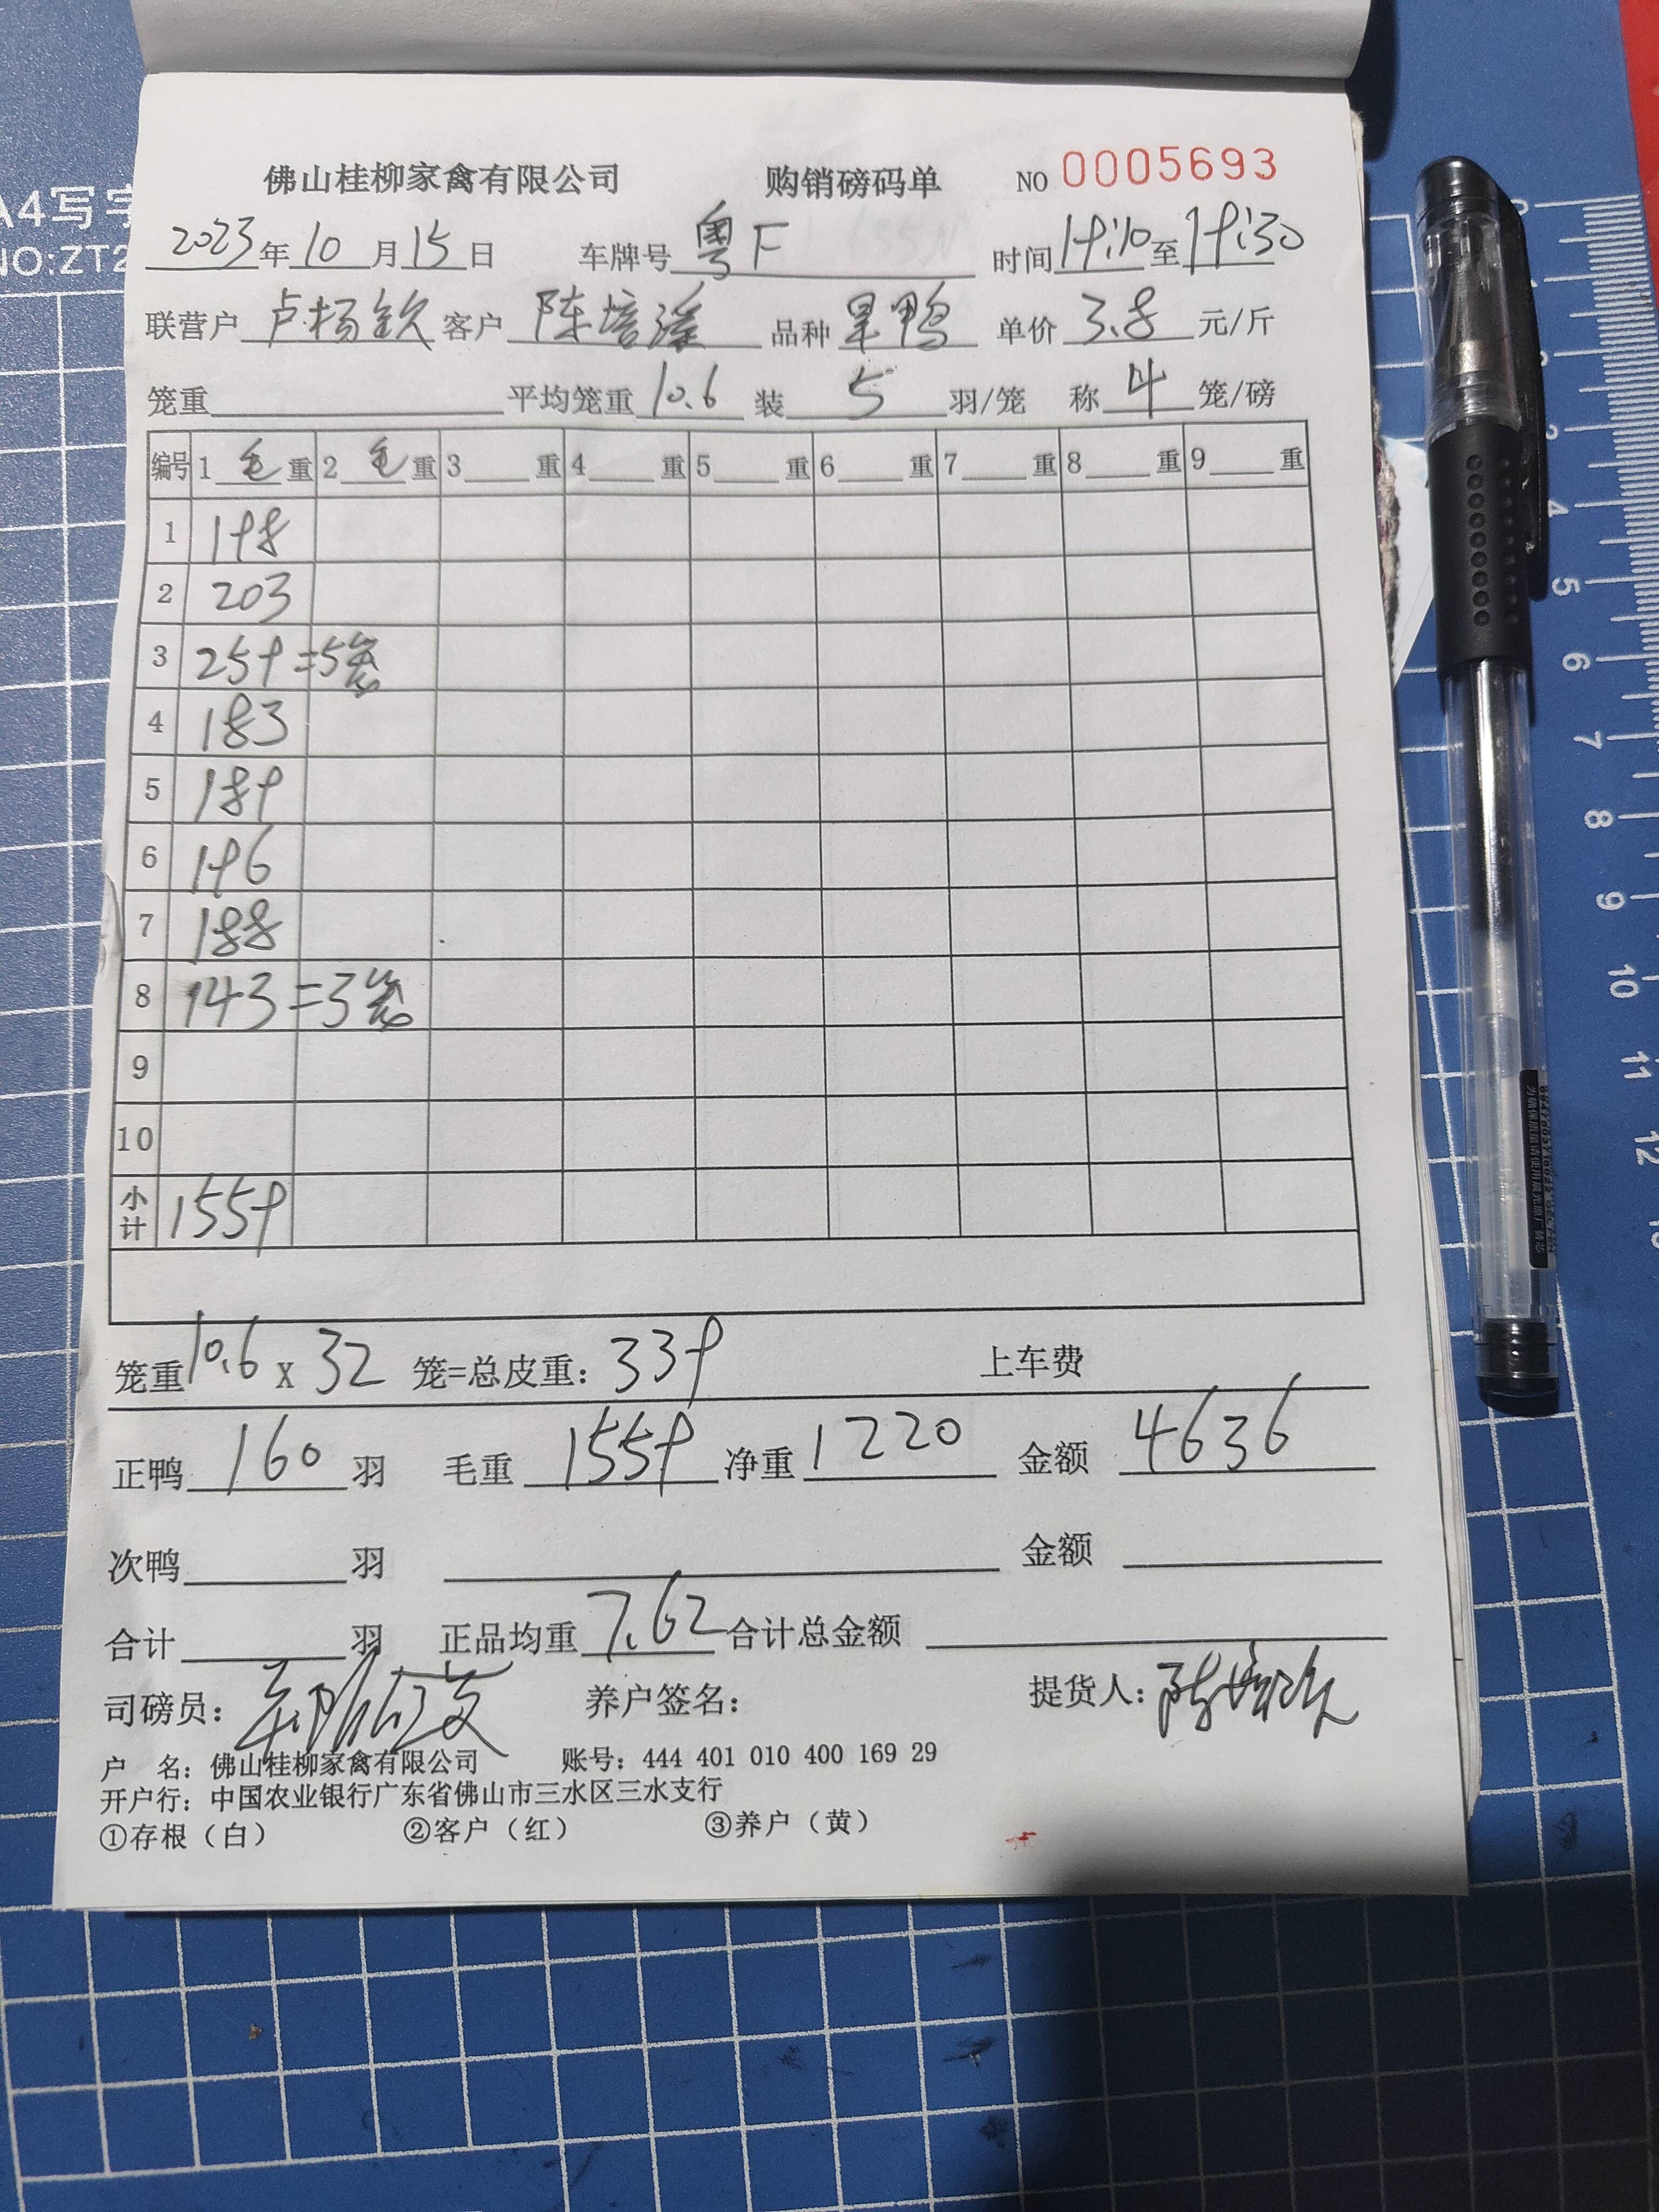 A4写字
NO:ZT2
佛山桂柳家禽有限公司 购销磅码单 NO 0005693
2023年10月15日 车牌号 粤F 时间 19:10至19:30
联营户 卢杨钦 客户 陈培滢 品种 旱鸭 单价 3.8 元/斤
笼重 平均笼重 10.6 装 5 羽/笼 称 4 笼/磅
编号 1 毛 重 2 毛 重 3 重 4 重 5 重 6 重 7 重 8 重 9 重
1 198
2 203
3 259=5笼
4 183
5 189
6 196
7 188
8 143=3笼
9
10
小计 1559
笼重 10.6 X 32 笼=总皮重: 339 上车费
正鸭 160 羽 毛重 1559 净重 1220 金额 4636
次鸭 羽 金额
合计 羽 正品均重 7.62 合计总金额
司磅员: 养户签名: 提货人:
户 名: 佛山桂柳家禽有限公司 账号: 444 401 010 400 169 29
开户行: 中国农业银行广东省佛山市三水区三水支行
①存根（白） ②客户（红） ③养户（黄）
4
5
6
7
8
9
10
11
12